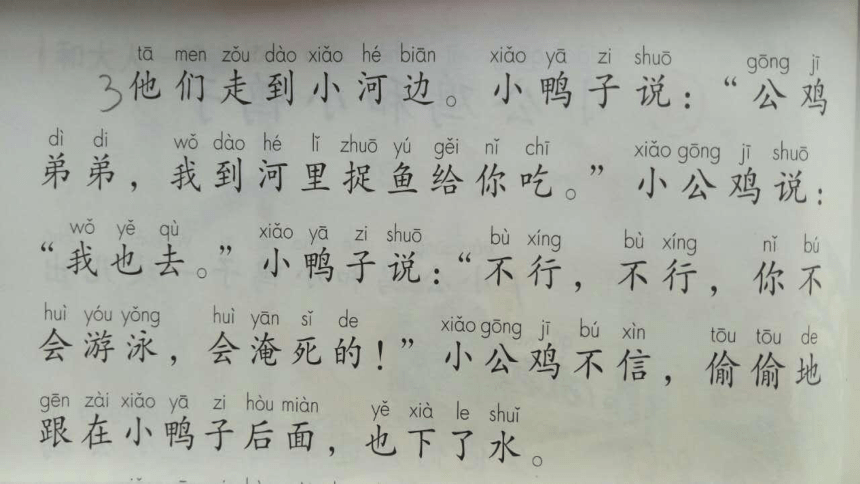 tā men zǒu dào xiǎo hé biān xiǎo yā zi shuō gōng jī
3他们走到小河边。小鸭子说：“公鸡
dì di wǒ dào hé lǐ zhuō yú gěi nǐ chī xiǎo gōng jī shuō
弟弟，我到河里捉鱼给你吃。”小公鸡说：
wǒ yě qù xiǎo yā zi shuō bù xíng bù xíng nǐ bú
“我也去。”小鸭子说：“不行，不行，你不
huì yóu yǒng huì yān sǐ de xiǎo gōng jī bú xìn tōu tōu de
会游泳，会淹死的！”小公鸡不信，偷偷地
gēn zài xiǎo yā zi hòu miàn yě xià le shuǐ
跟在小鸭子后面，也下了水。